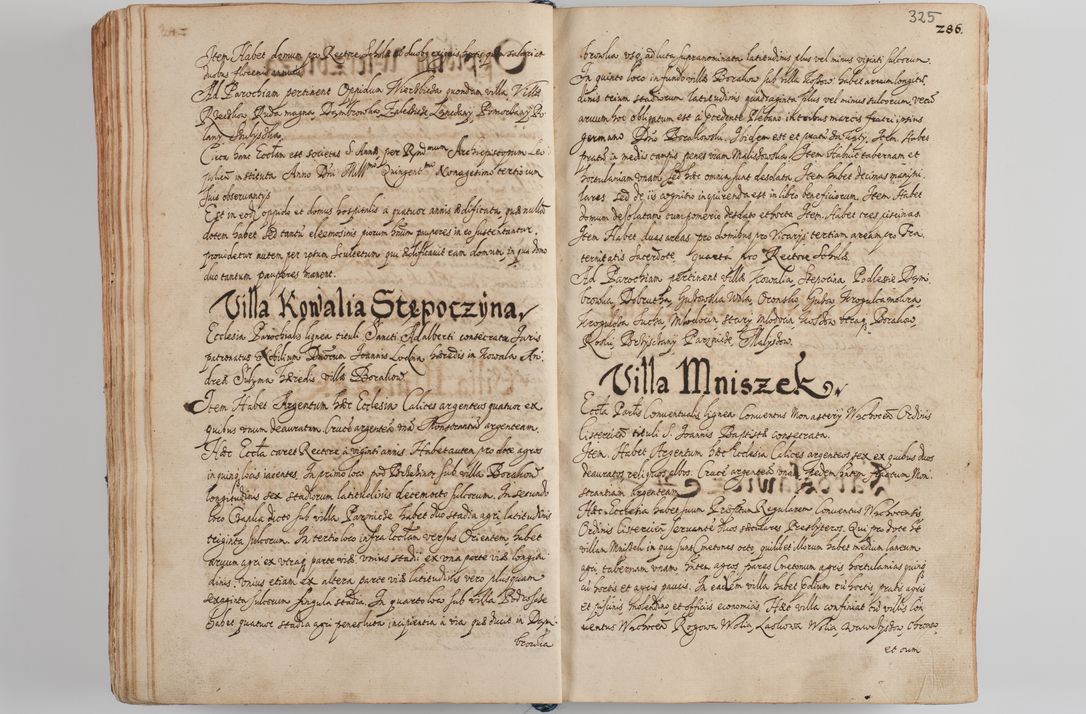 Item Habet domum pro Rectore Scholæ
duobus florenis annui
Ad Parochiam pertinent Oppidum Wierzbicza quondam villa Villæ
Rzeczkow Ruda magna Dąmbrowka Zalesicze
lany
Circa hanc Ecclam est societas S. Annæ per Rndmum Archiepiscopum Leo
polien instituta Anno Dni Millmo Quingentmo Nonagesimo tertio cum
suis observantijs
Est in eodē oppido et domus hospitalis a quatuor annis ædificata, quæ nullā
dotem habet Sed tantū eleemosinis piorum hnūm pauperes in eo sustentantur,
providetur autem per ipsum Scultetum qui ædificavit eam domum, in qua domo
duo tantum pauperes manent.
Villa Kowalia Stępoczyna.
Ecclesia Parochialis lignea tituli Sancti Adalberti consecrata Juris
patronatus Nobilium Dnorum Joannis hæredis in Kowala An
dreæ hæredis villæ Borakow.
Item Habet Argentum hæc Ecclesia Calices argenteos quatuor ex
quibus unum deauratum Crucē argenteā unā Monstrantiā argenteam.
Hæc Eccla caret Rectore à viginti annis Habet autem pro dote agros
in quinq locis iacentes. In primo loco sub villa Borakow
longitudinis sex stadiorum latitudinis decem octo sulcorum. In secundo
loco dicto sub villa habet duo stadia agri latitudinis
triginta sulcorum. In tertio loco infra Ecclam versus Orientem habet
arvum agri ex utraq parte viæ unius stadii ex una parte viæ longitu
dinis, unius etiam ex altera parte viæ latitudinis vero plusquam
sexaginta sulcorum singula stadia. In quarto loco sub villa
habet quatuor stadia agri penes luta incipientia à via quæ ducit in Dąm
browka
325
286.
browka usq ad luta supranominata latitudinis plus vel minus viginti sulcorum.
In quinto loco in fundo villæ Borakow sub villa habet arvum longitu
dinis trium stadiorum latitudinis quadraginta plus vel minus sulcorum, verū
arvum hoc obligatum est à præcedente Plebano in tribus marcis fratri ipsius
germano Dno Borakowski. Ibidem est et pratū Item. Habet
pratū in medio campi penes viam Item Habuit tabernam et
hortulaniam unam, sed hæc omnia sunt desolata. Item habet decimas manipu
lares sed de iis cognitio inquirenda est in libro beneficiorum. Item Habet
domum desolatam cum pomerio desolato et horto. Item Habet tres piscinas.
Item Habet duas areas pro domibus pro Vicarijs tertiam aream pro Fra
ternitatis Sacerdote Quarta pro Rectore Scholæ.
Ad Parochiam pertinent villæ Kowalia, Stępocina Podlessie Dąm
browka, Dobrutha, Wola, Oronsko, Guzow
Młodocin stary Młodocin Borakow,
Parznicze Małyszow.
Villa Mniszek
Eccla Partis Conventualis lignea Conventus Monasterij Wachocen Ordinis
Cistercien tituli S. Joannis Baptistæ consecrata.
Item. Habet Argentum hæc Ecclesia Calices argenteos sex ex quibus duo
deauratos reliquos albos. Crucē argenteā unam Mon
strantiam argenteam
Hæc Ecclesia habet suum Præpositum Regularem Conventus Wachocensis
Ordinis Cistercien servantē duos sæculares Presbyteros. Qui pro dote ht
villam Mniszek in qua sunt Cmetones octo, quilibet illorum habet medium laneum
agri, tabernam unam. Inter agros pares Cmetonum agris hortulanias quinq
cū hortis et agris paucis. In eadem villa habet prædium cū hortis, pratis agris
et piscinis molendino et officiis economicis Hæc villa confiniat cū villis Con
ventus Wachocen Rogowa Wolia, Laskowa Wolia,
et cum